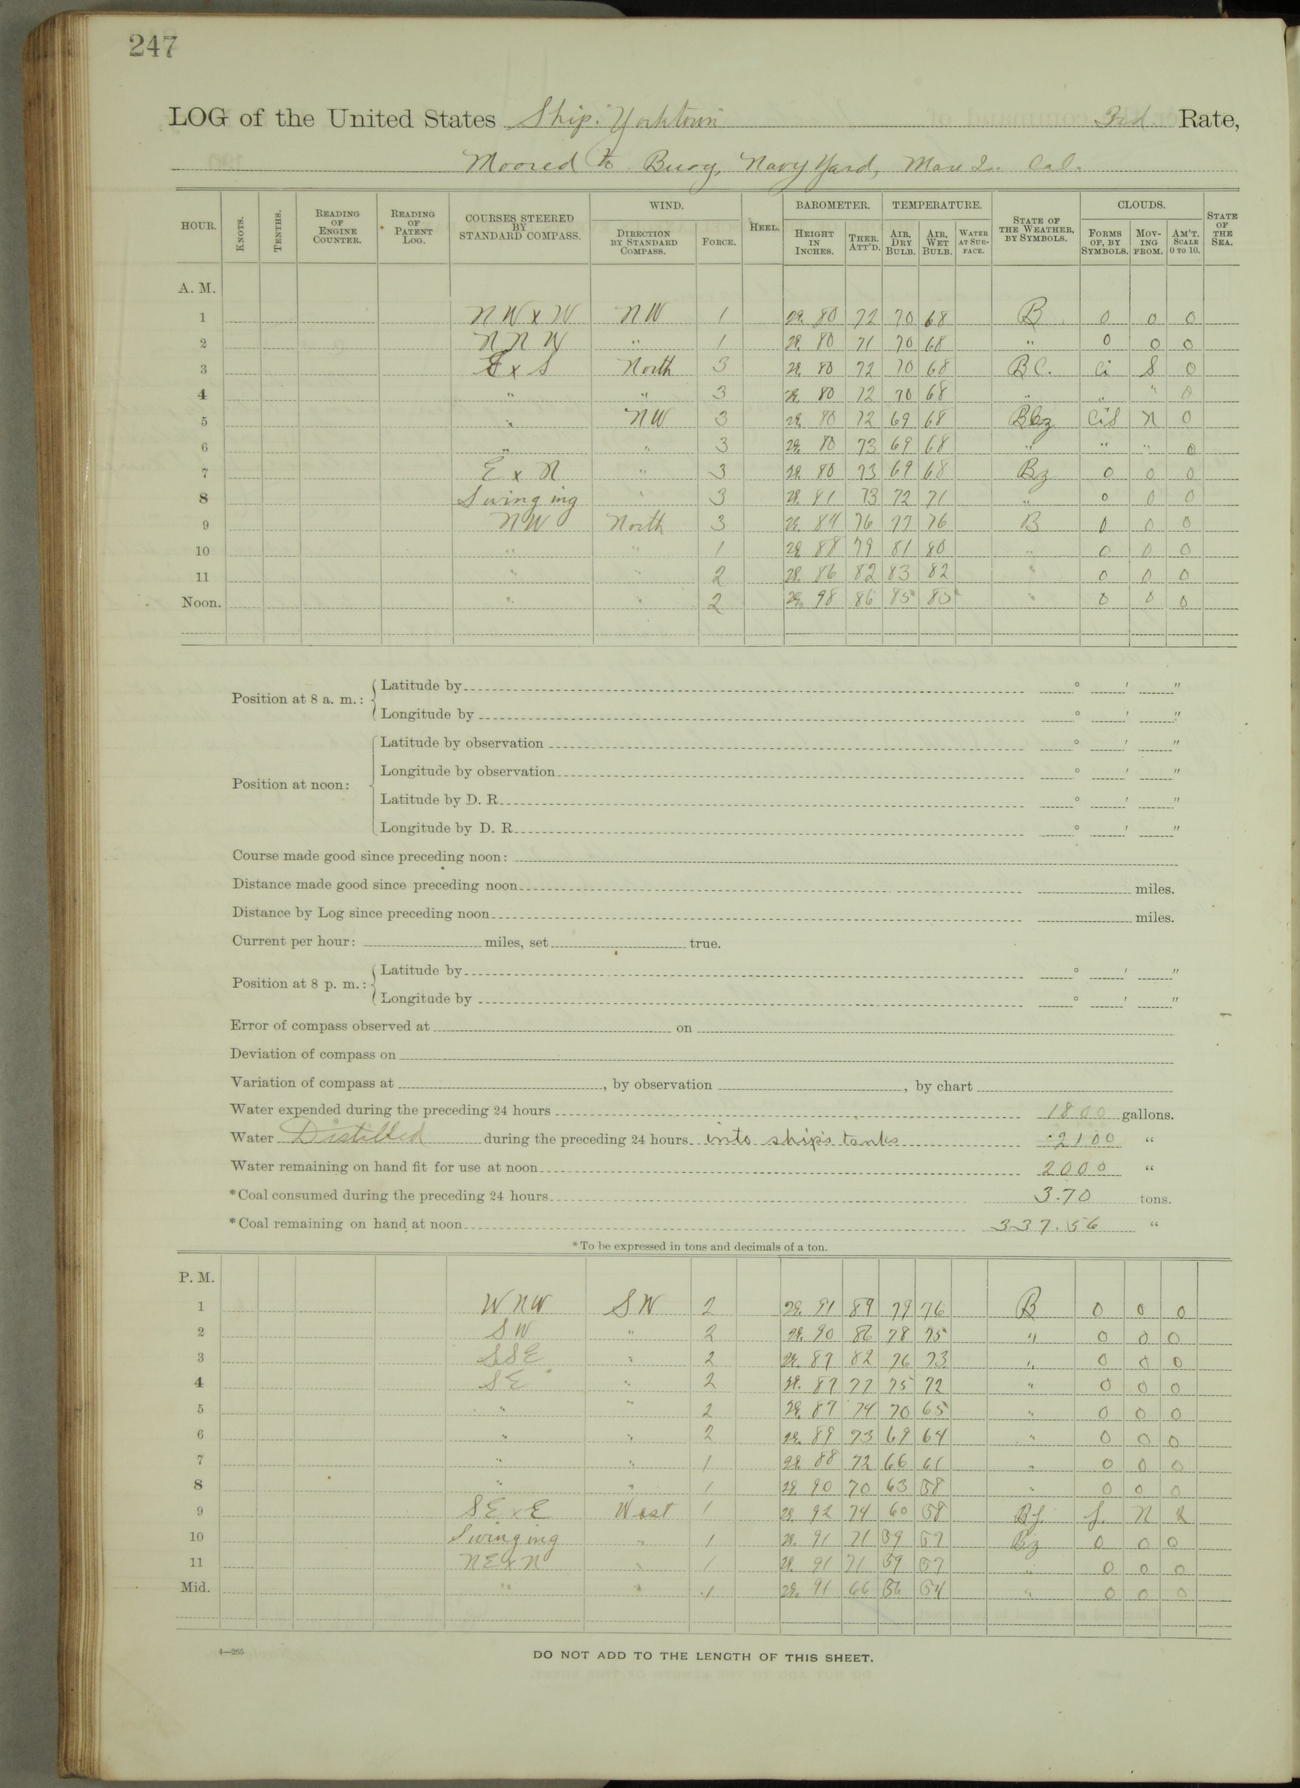 247
LOG of the United States Ship. Yorktown 3rd. Rate,
Moored to Buoy, Navy Yard, Mare Is. Cal.
HOUR. KNOTS. TENTHS. READING OF ENGINE COUNTER. READING OF PATENT LOG. COURSES STEERED BY STANDARD COMPASS. WIND. DIRECTION BY STANDARD COMPASS. FORCE. HEEL. BAROMETER. HEIGHT IN INCHES. THER. ATT'D. TEMPERATURE. AIR, DRY BULB. AIR, WET BULB. WATER AT SURFACE. STATE OF THE WEATHER, BY SYMBOLS. CLOUDS. FORMS OF, BY SYMBOLS. MOVING FROM. AM'T. SCALE 0 TO 10. STATE OF THE SEA.
A. M.
1 NW x W NW 1 29. 80 72 70 68 B 0 0 0
2 NNW " 1 29. 80 71 70 68 " 0 0 0
3 E x S North 3 29. 80 72 70 68 BC. Ci S 0
4 " " 3 29. 80 72 70 68 " " " 0
5 " NW 3 29. 80 72 69 68 CiS N 0
6 " " 3 29. 80 73 69 68 " " " 0
7 E x N " 3 29. 80 73 69 68 Bz 0 0 0
8 Swinging " 3 29. 81 73 72 71 " 0 0 0
9 NW North 3 29. 84 76 77 76 B 0 0 0
10 " " 1 29. 88 79 81 80 " 0 0 0
11 " " 2 29. 86 82 83 82 " 0 0 0
Noon. " " 2 29. 98 86 85 85 " 0 0 0
Position at 8 a. m.: Latitude by ° ′ ″
Longitude by ° ′ ″
Position at noon: Latitude by observation ° ′ ″
Longitude by observation ° ′ ″
Latitude by D. R. ° ′ ″
Longitude by D. R. ° ′ ″
Course made good since preceding noon:
Distance made good since preceding noon miles.
Distance by Log since preceding noon miles.
Current per hour: miles, set true.
Position at 8 p. m.: Latitude by ° ′ ″
Longitude by ° ′ ″
Error of compass observed at on
Deviation of compass on
Variation of compass at , by observation , by chart
Water expended during the preceding 24 hours 1800 gallons.
Water Distilled during the preceding 24 hours into ship's tanks 2100 "
Water remaining on hand fit for use at noon 2000 "
*Coal consumed during the preceding 24 hours 3.70 tons.
*Coal remaining on hand at noon 337.56 "
*To be expressed in tons and decimals of a ton.
P. M.
1 WNW SW 2 29. 91 89 79 76 B 0 0 0
2 SW " 2 29. 90 86 78 75 " 0 0 0
3 SSE " 2 29. 87 82 76 73 " 0 0 0
4 SE " 2 29. 87 77 75 72 " 0 0 0
5 " " 2 29. 87 74 70 65 " 0 0 0
6 " " 2 29. 89 73 69 64 " 0 0 0
7 " " 1 29. 88 72 66 61 " 0 0 0
8 " " 1 29. 90 70 63 58 " 0 0 0
9 SE x E West 1 29. 92 74 60 58 Bf. f. N
10 Swinging " 1 29. 91 71 59 57 Bz 0 0 0
11 NE x N " 1 29. 91 71 59 57 " 0 0 0
Mid. " " 1 29. 91 66 56 54 " 0 0 0
4—265
DO NOT ADD TO THE LENGTH OF THIS SHEET.